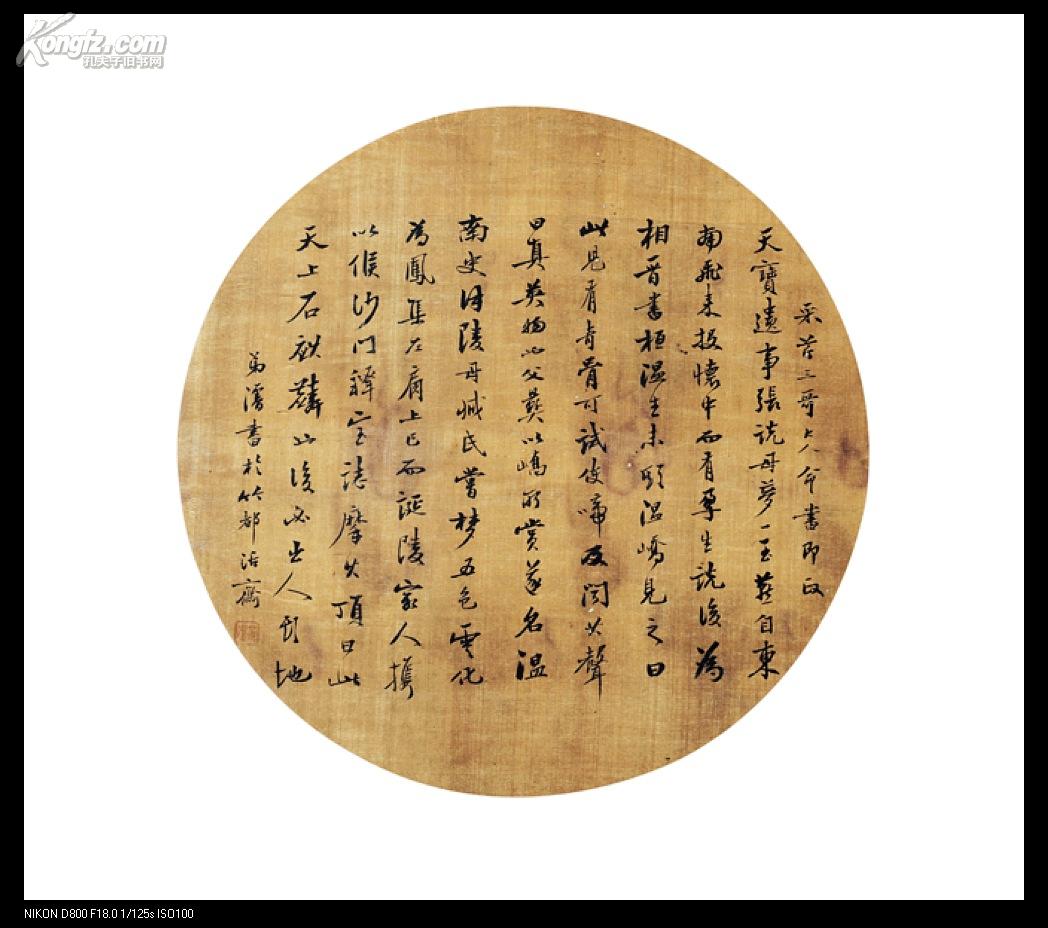 Kongfz.com
孔夫子旧书网
三哥大人命书即政
天寶遺事張説母夢一玉燕自東
南飛来投懷中而有孕生説後為
相晋書桓温生未期温嶠見之曰
此児有奇骨可試使啼及聞其聲
曰真英物也父彝以嶠所賞遂名温
南史徐陵母臧氏嘗梦五色雲化
為鳳集左肩上已而誕陵家人攜
以候沙門釋宝誌摩其頂曰此
天上石麒麟山後必出人頭地
弟濬書於竹都活齋
NIKON D800 F18.0 1/125s ISO100